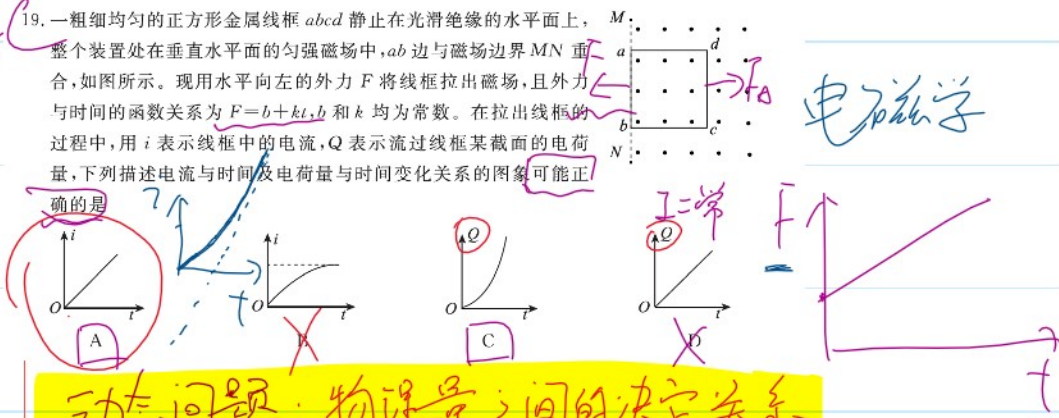 19. 一粗细均匀的正方形金属线框 abcd 静止在光滑绝缘的水平面上,
整个装置处在垂直水平面的匀强磁场中,ab 边与磁场边界 MN 重
合,如图所示。现用水平向左的外力 F 将线框拉出磁场,且外力
与时间的函数关系为 F=b+kt,b 和 k 均为常数。在拉出线框的
过程中,用 i 表示线框中的电流,Q 表示流过线框某截面的电荷
量,下列描述电流与时间及电荷量与时间变化关系的图象可能正
确的是
M
a d
F
F_A
b c
N
电磁学
I=常
i
O t
A
i
O t
Q
O t
C
Q
O t
D
F
t
动态问题:物理量之间的决定关系